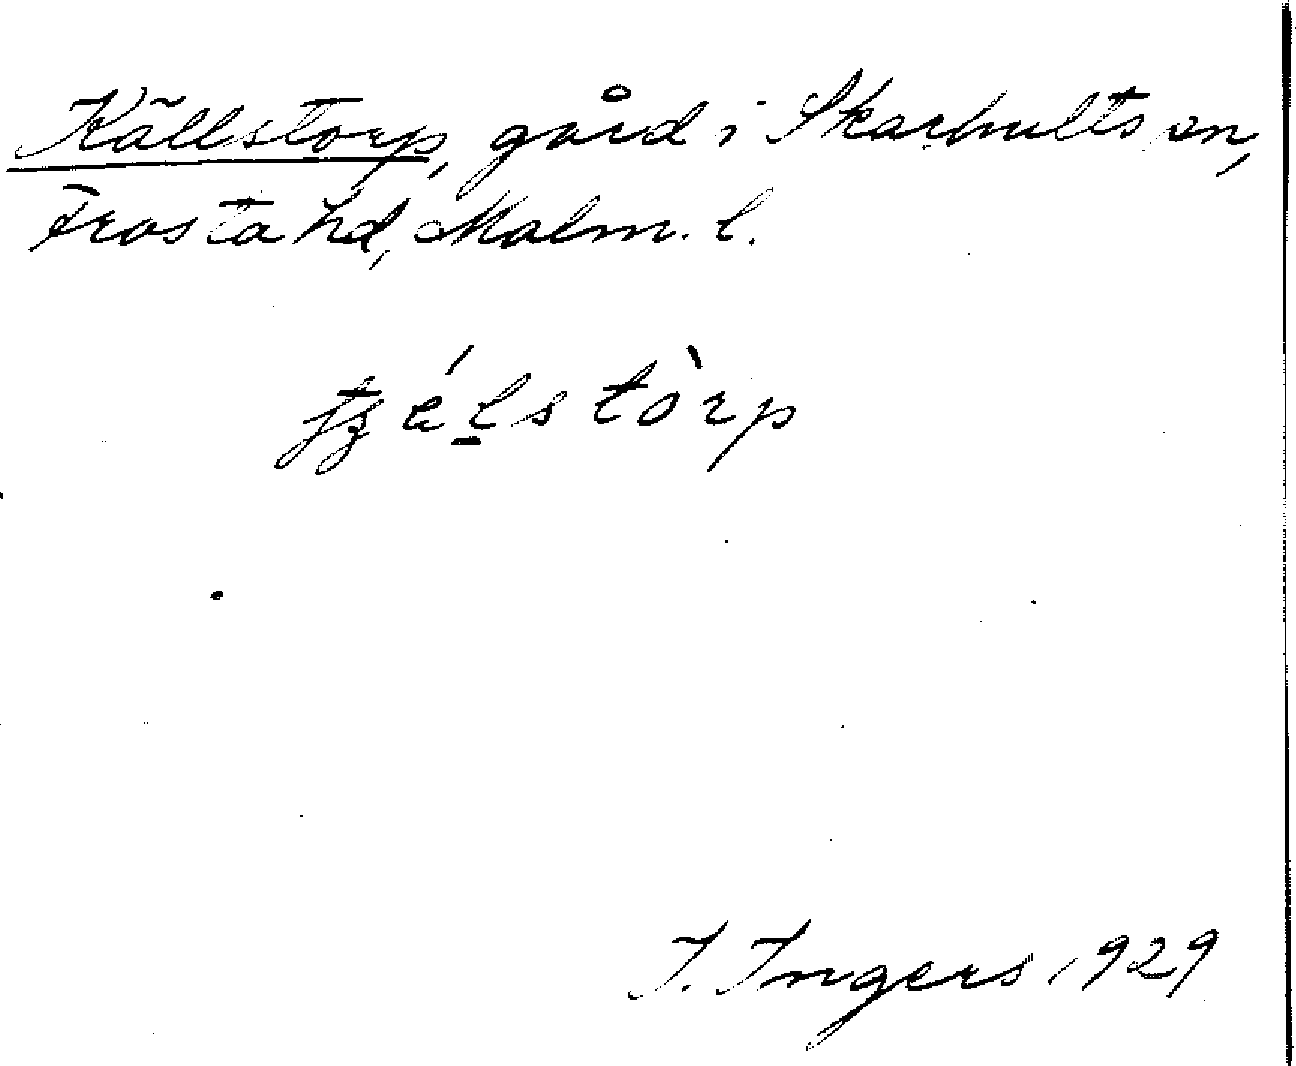 Källstorp, gård i Skarhults sn,
Frosta hd, Malm. l.
tʒél̠stòrp
I. Ingers 1929